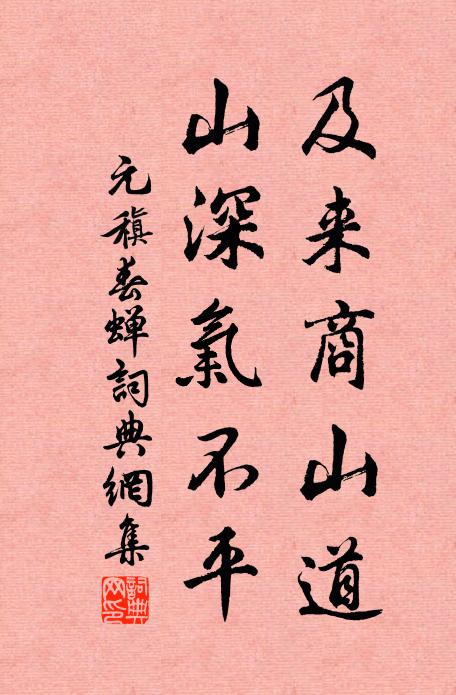 及来商山道
山深氣不平
元稹春蟬詞典網集
詞典網印